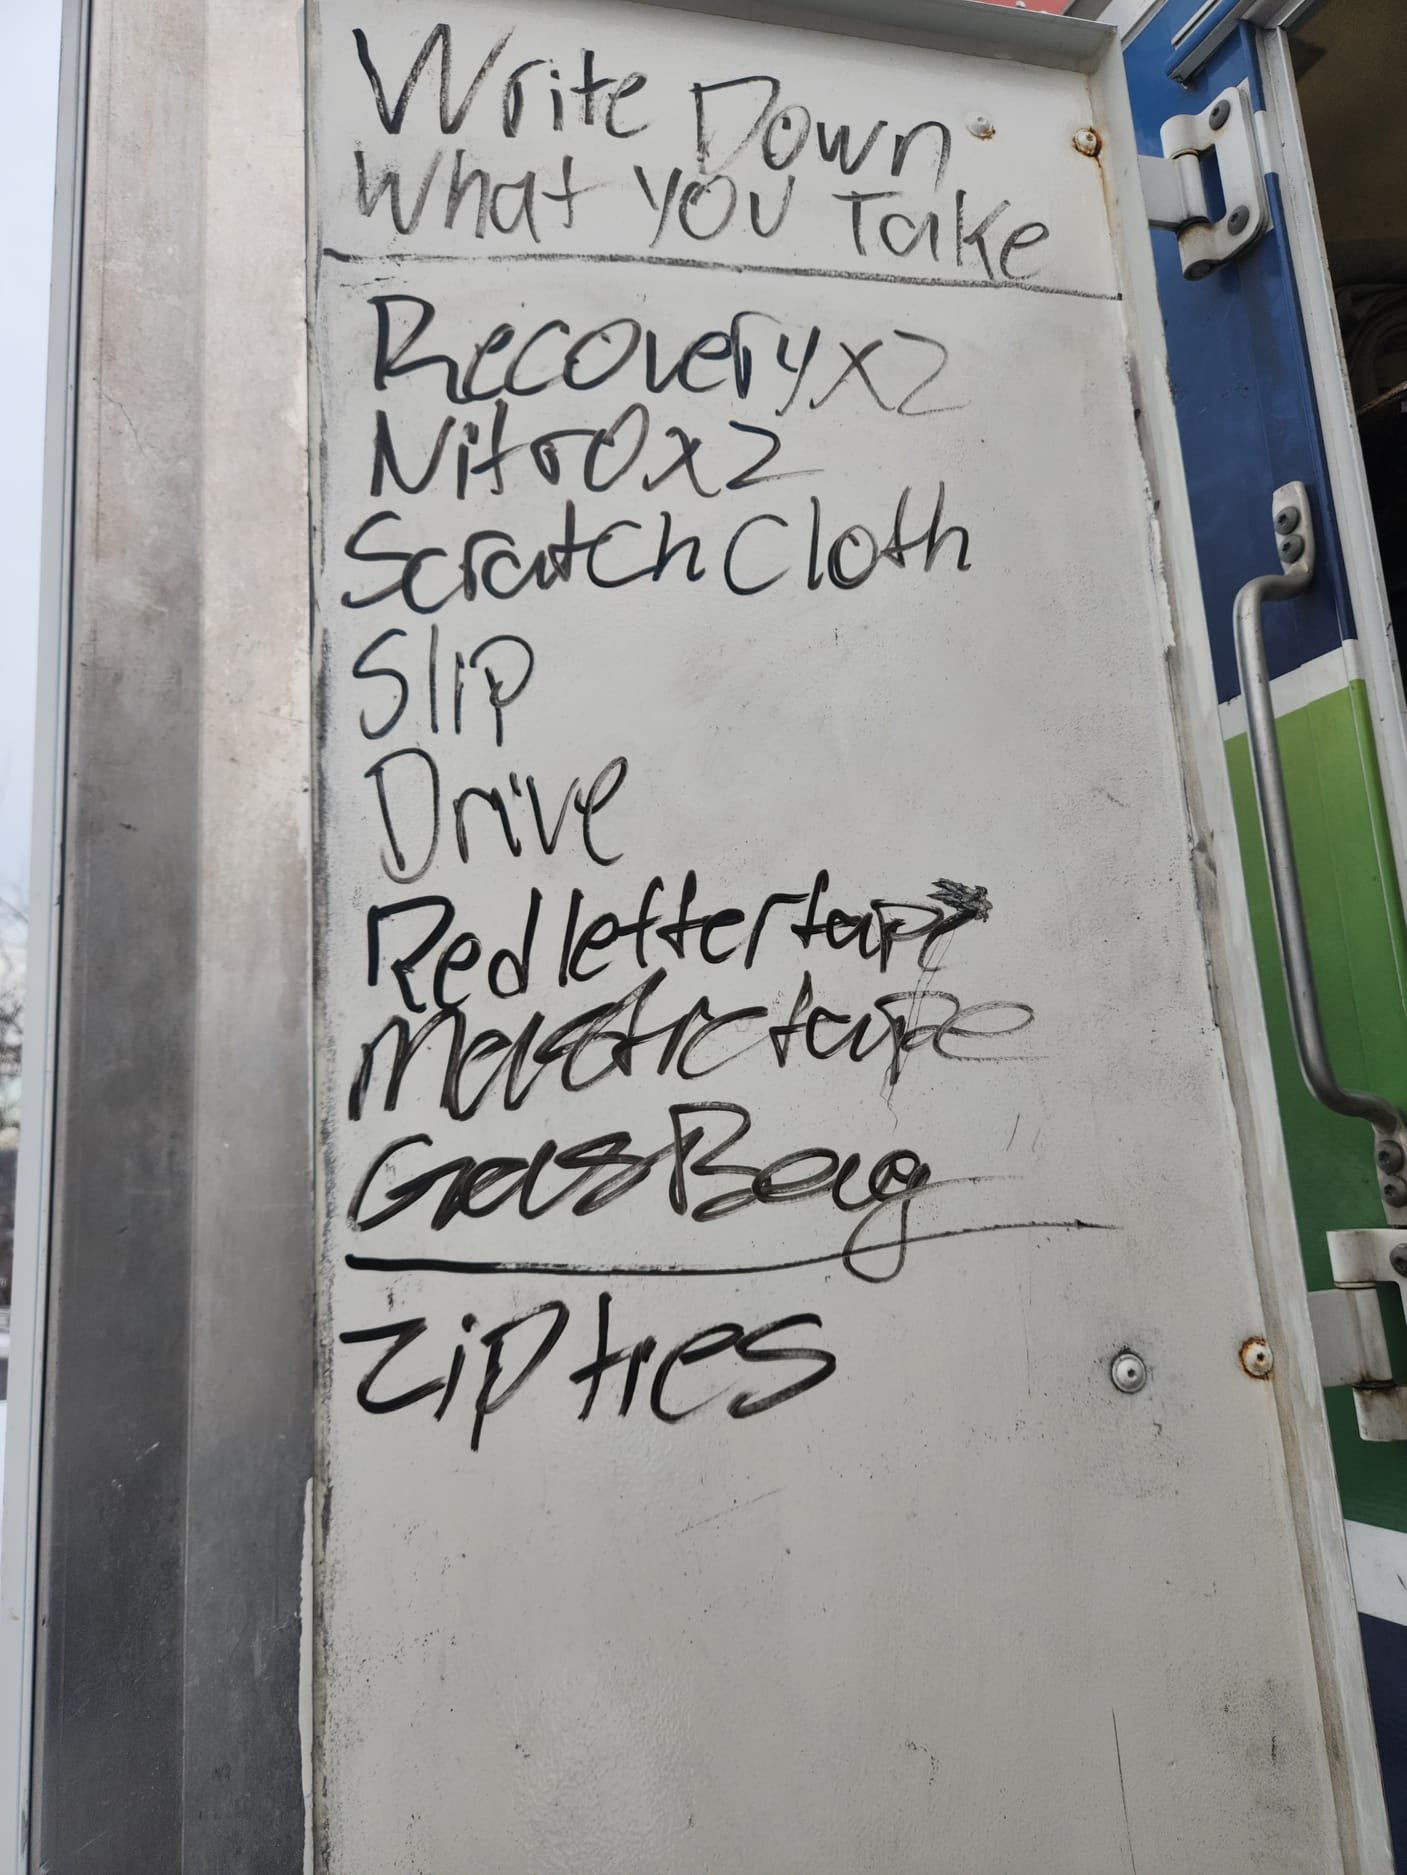 Write Down
What you Take
Recovery x2
Nitro x2
Scratch Cloth
Slip
Drive
Red letter tape
Mastic tape
Gas Bag
Zip ties